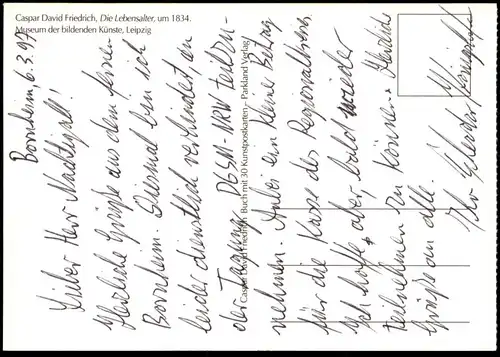 Caspar David Friedrich, Die Lebensalter, um 1834.
Museum der bildenden Künste, Leipzig
Caspar David Friedrich Buch mit 30 Kunstpostkarten – Parkland Verlag
Bornheim, 6.3.97
Lieber Herr Nachtigall!
Herzliche Grüße aus dem fernen
Bornheim. Diesmal bin ich
leider dienstlich verhindert an
der Tagung DGSM-NRW teilzu-
nehmen. Anbei ein kleiner Betrag
für die Kasse des Regionalkreis.
Ich hoffe aber, bald wieder
teilnehmen zu können. Herzliche
Grüße an alle.
Ihr